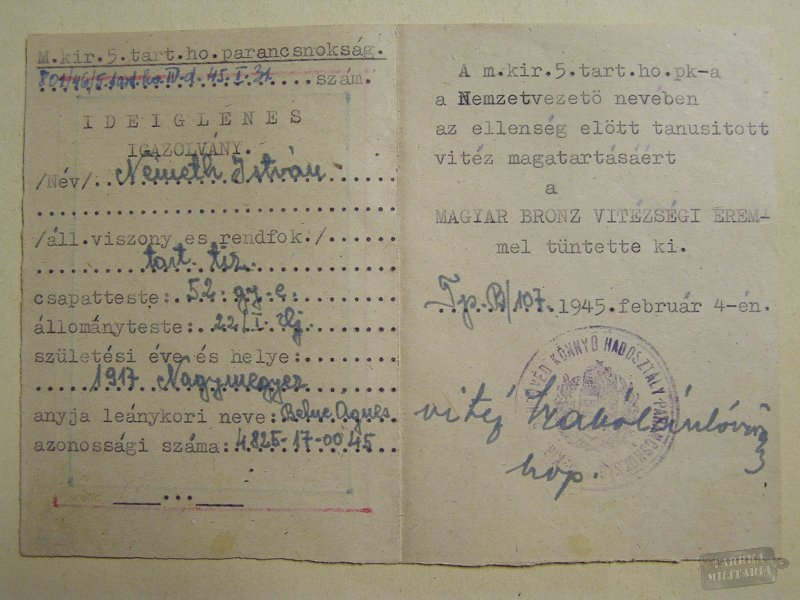 M.kir.5.tart.ho.parancsnokság.
801/46/5.tart.ho IV.d. 45.I.31. szám.
IDEIGLENES
IGAZOLVÁNY.
/Név/ Németh István
/áll.viszony es rendfok./
tart. tiz.
csapatteste: 52. gy. e.
állományteste: 22/I. zlj.
születési éve és helye:
1917 Nagymegyer
anyja leánykori neve: Ágnes
azonossági száma: 4825-17-0045
___...___
A m.kir.5.tart.ho.pk-a
a Nemzetvezetö nevében
az ellenség elött tanusitott
vitéz magatartásáért
a
MAGYAR BRONZ VITÉZSÉGI ÉREM-
mel tüntette ki.
Tp. B/107. 1945.február 4-én.
HONVÉD KÖNNYŰ HADOSZTÁLY PARANCSNOKSÁG
vitéz
hop.
TARTKA
MILITARIA